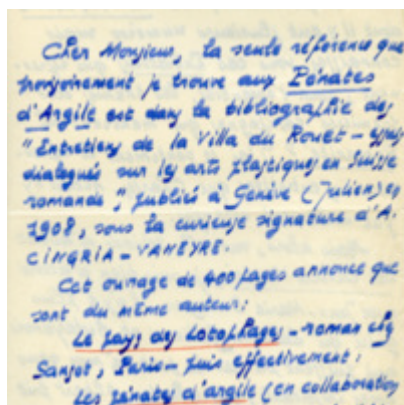 Cher Monsieur, la seule référence que
je trouve aux Pénates
d'Argile est dans la bibliographie des
"Entretiens de la Villa du Rouet - essais
dialogués sur les arts plastiques en Suisse
romande", publiés à Genève (Jullien) en
1908, sous la curieuse signature d'A.
CINGRIA-VANEYRE.
Cet ouvrage de 400 pages annonce que
sont du même auteur:
Le pays des Lotophages - roman chez
Sansot, Paris - puis effectivement:
Les pénates d'argile (en collaboration